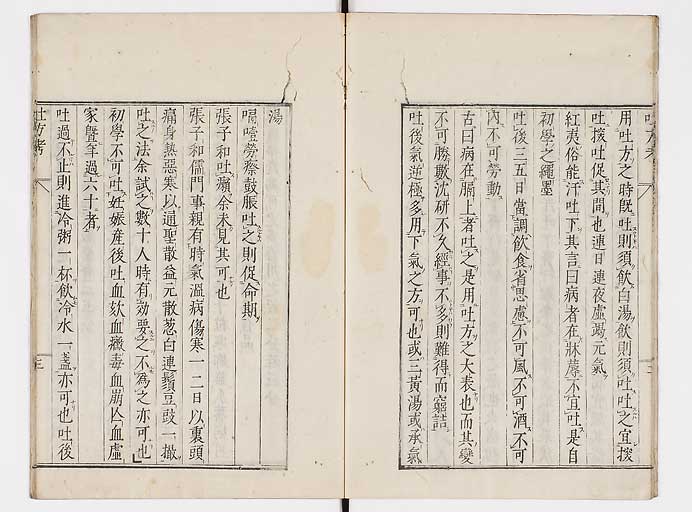 用吐方之時既吐則須飲白湯飲則須吐吐之宜援
吐援吐促其間也連日連夜虛竭元氣
紅夷俗能汗吐下其言曰病者在牀蓐不宜吐是自
初學之繩墨
吐後三五日當調飲食省思慮不可風不可酒不可
內不可勞動
古曰病在膈上者吐之是用吐方之大表也而其變
不可勝數沈研不久經事不多則難得而窮詰
吐後氣逆極多用下氣之方可也或三黃湯或承氣
湯
膈噎勞瘵鼓脹吐之則促命期
張子和吐癪余未見其可也
張子和儒門事親有時氣溫病傷寒一二日以裏頭
痛身熱惡寒以通聖散益元散葱白連鬚豆豉一撮
吐之法余試之數十人時有効要之不為之亦可也
初學不可吐妊娠產後吐血欬血衂毒血崩亾血虛
家曁年過六十者
吐過不止則進冷粥一杯飲冷水一盞亦可也吐後
吐方考